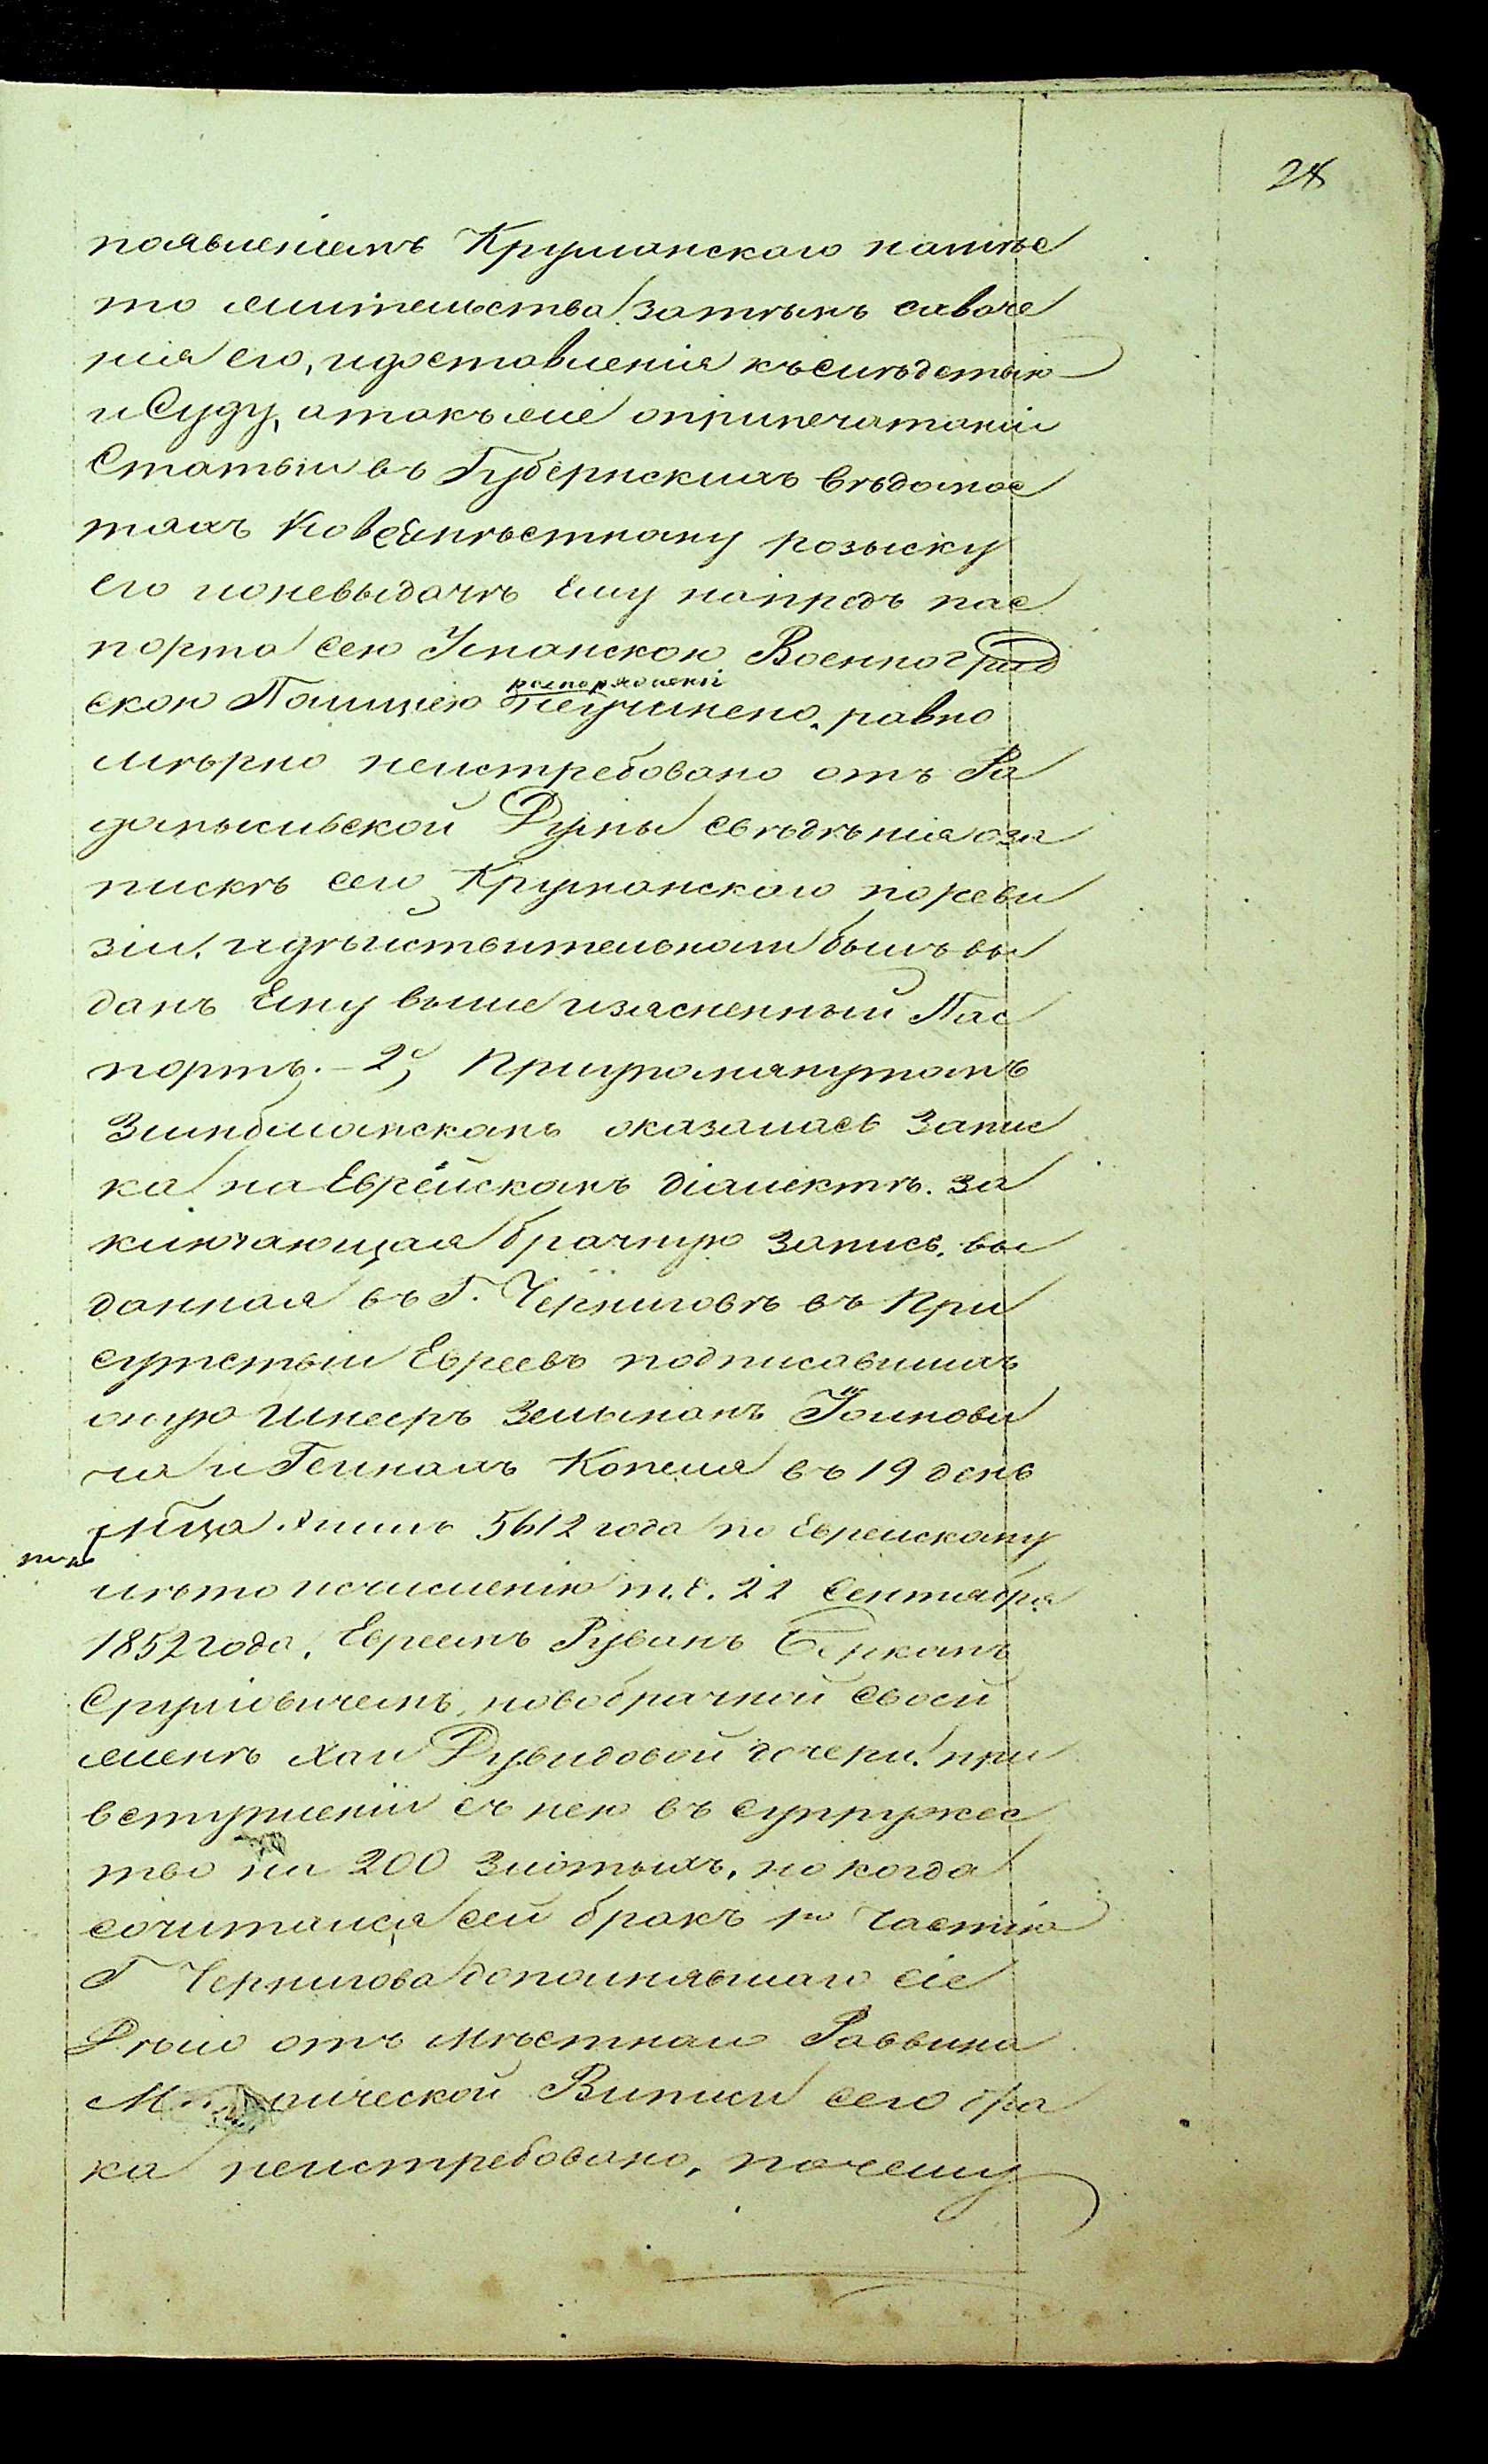 28
появленіемъ Круманскаго намѣс
то жительства затѣмъ схваче
нія его, идоставленія къслѣдствію
и Суду, атакъже оприпечатаніи
Статьи въ Губернскихъ вѣдомос
тяхъ Коповсемѣстному розыску
его ионевыдачѣ Ему напредъ пас
порта сею Уманскою Военноград
распоряженій
скою Полицією неучинено, равно
мѣрно неистребовано отъ Ра
домысльской Думы свѣдѣнія оза
пискѣ сего Круманскаго пореви
зіи, идѣйствительноли былъ вы
данъ Ему выше изясненный Пас
портъ. – 2е, Приупомянутомъ
Зинблианскомъ оказалась Запис
ка на Еврейскомъ діалектѣ. за
ключающая брачную запись, вы
данная въ Г. Черниговѣ въ при
сутствіи Евреевъ подписавшихъ
оную Шнееръ Зельманъ Иолнови
ча и Генналъ Копеля въ 19 день
Мѣца Тишъ 5612 года по Еврейскому
лѣто исчисленію т. е. 22 Сентября
1852 года, Евреемъ Рувинъ Беркомъ
Срулiовичемъ, новобрачной своей
женѣ Хаи Дувидовой дочери, при
вступленіи съ нею въ супружес
тво на 200 злотыхъ, но когда
сочитался сей бракъ 1ю Частію
Г Чернигова дополнявшаго сіе
Дѣло отъ мѣстнаго Раввина
Метрической Выписи сего бра
ка неистребовано, почему